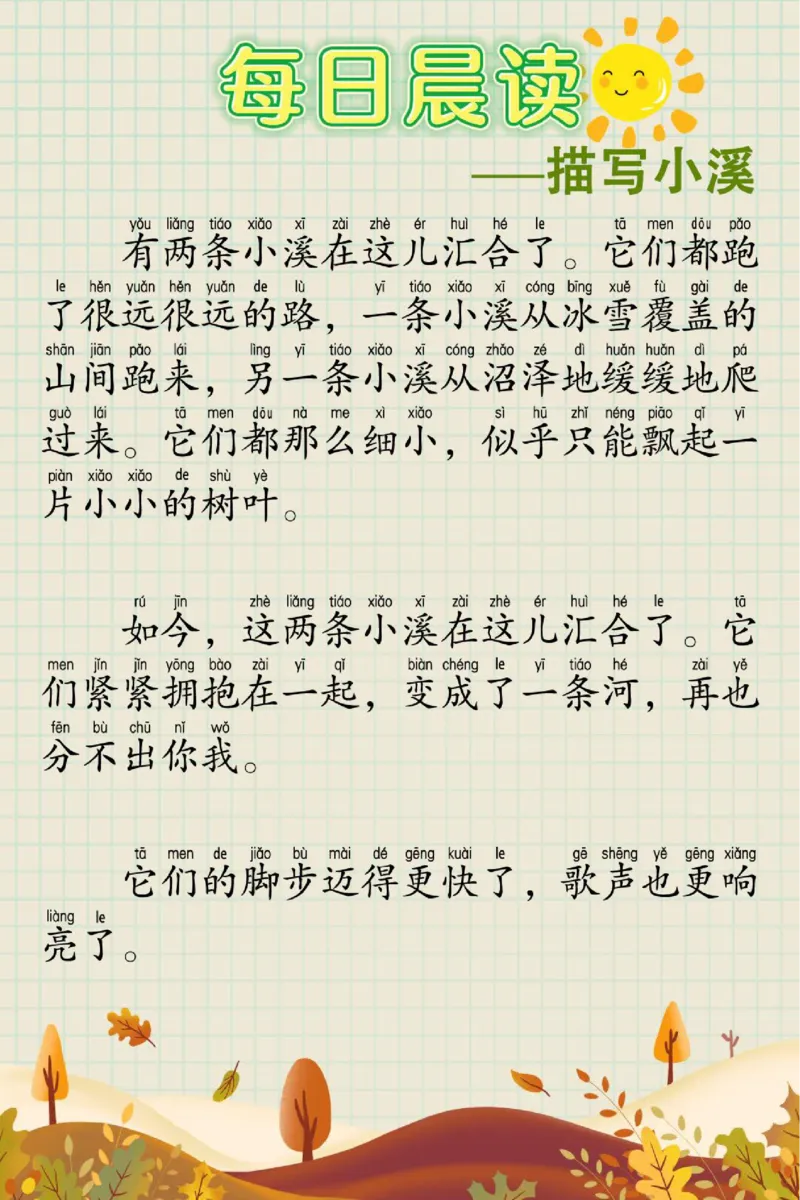 每日晨读
——描写小溪
yǒu liǎng tiáo xiǎo xī zài zhè ér huì hé le tā men dōu pǎo
有两条小溪在这儿汇合了。它们都跑
le hěn yuǎn hěn yuǎn de lù yī tiáo xiǎo xī cóng bīng xuě fù gài de
了很远很远的路，一条小溪从冰雪覆盖的
shān jiān pǎo lái lìng yī tiáo xiǎo xī cóng zhǎo zé dì huǎn huǎn dì pá
山间跑来，另一条小溪从沼泽地缓缓地爬
guò lái tā men dōu nà me xì xiǎo sì hū zhǐ néng piāo qǐ yī
过来。它们都那么细小，似乎只能飘起一
piàn xiǎo xiǎo de shù yè
片小小的树叶。
rú jīn zhè liǎng tiáo xiǎo xī zài zhè ér huì hé le tā
如今，这两条小溪在这儿汇合了。它
men jǐn jǐn yōng bào zài yī qǐ biàn chéng le yī tiáo hé zài yě
们紧紧拥抱在一起，变成了一条河，再也
fēn bù chū nǐ wǒ
分不出你我。
tā men de jiǎo bù mài dé gēng kuài le gē shēng yě gēng xiǎng
它们的脚步迈得更快了，歌声也更响
liàng le
亮了。